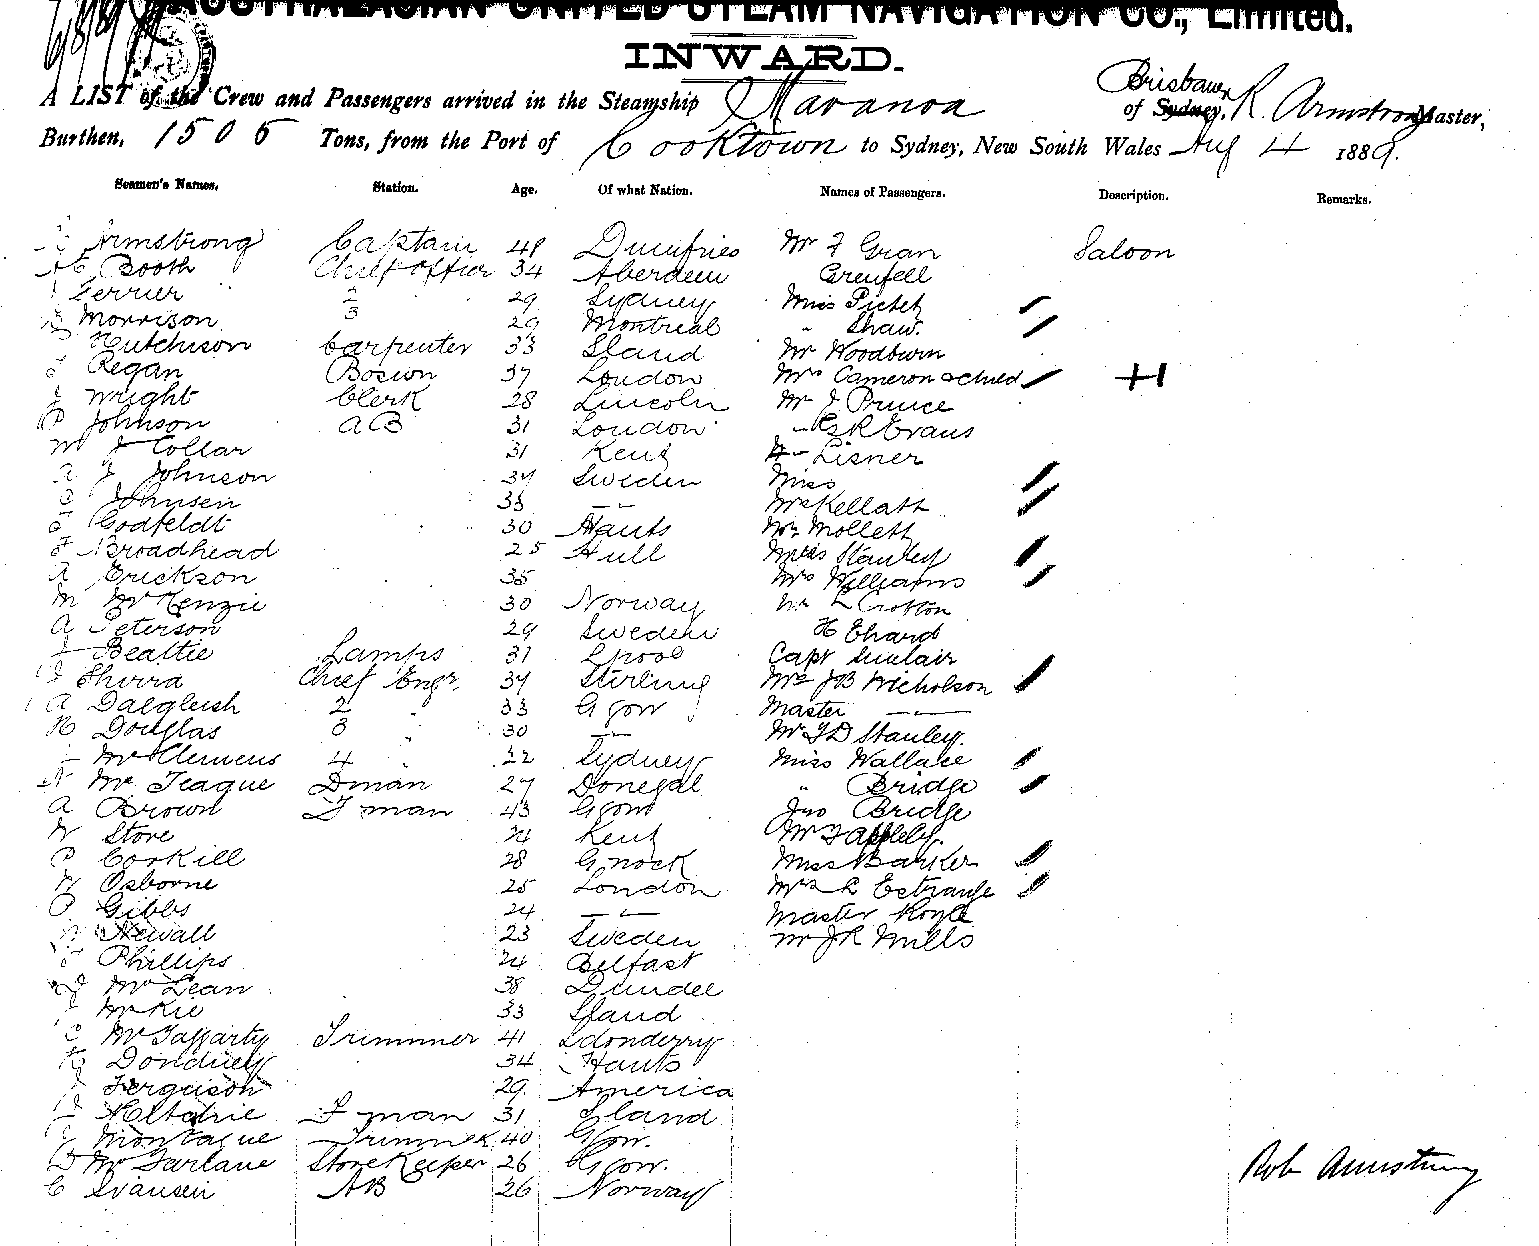 AUSTRALASIAN UNITED STEAM NAVIGATION CO., Limited.
INWARD.
A LIST of the Crew and Passengers arrived in the Steamship Maranoa Brisbane of Sydney, R. Armstrong Master,
Burthen, 1505 Tons, from the Port of Cooktown to Sydney, New South Wales Aug 4 1889.
Seamen's Names. Station. Age. Of what Nation. Names of Passengers. Description. Remarks.
Armstrong Captain 48 Dumfries Mr F Gran Saloon
Booth Chief officer 34 Aberdeen Grenfell
Ferrier 2 29 Sydney Miss Pictet
Morrison 3 29 Montreal " Shaw
Hutchison Carpenter 33 Sland Mr Woodburn
Regan Bosun 37 London Mrs Cameron & child
J Wright Clerk 28 Lincoln Mr J Prince
P Johnson AB 31 London Evans
M J Collar 31 Kent Lisner
A J Johnson 34 Sweden Miss
Johnsen 33 — " — McKellatt
Godfeldt 30 Hants Mr Mollett
F Broadhead 25 Hull Miss Stanley
A Erickson 35 Mrs Williams
M McKenzie 30 Norway Mr L Crofton
A Peterson 29 Sweden H Ehard
J Beattie Lamps 31 Lpool Capt Sinclair
Shirra Chief Engr. 34 Stirling Mrs JB Nicholson
A Dalgleish 2 " 33 Ggow Master — " —
H Douglas 3 " 30 — " — Mr FD Stanley
McClemens 4 " 22 Sydney Miss Wallace
McTeague Dman 27 Donegal " Bridge
A Brown F man 43 Ggow Jno Bridge
W Store 24 Kent Mr F Appleby.
P Corkill 28 Gnock Miss Barker
W Osborne 25 London Mrs L Estrange
Gibbs 24 — " — Master Royle
Newall 23 Sweden Mr JR Mills
Phillips 24 Belfast
McLean 38 Dundee
McKie 33 Sland
C McTaggarty Trimmer 41 Ldonderry
34 Hants
Ferguson 29 America
F man 31 Sland
Montague Trimmer 40 Ggow.
D McFarlane StoreKeeper 26 Ggow. Rob Armstrong
C Svansen AB 26 Norway